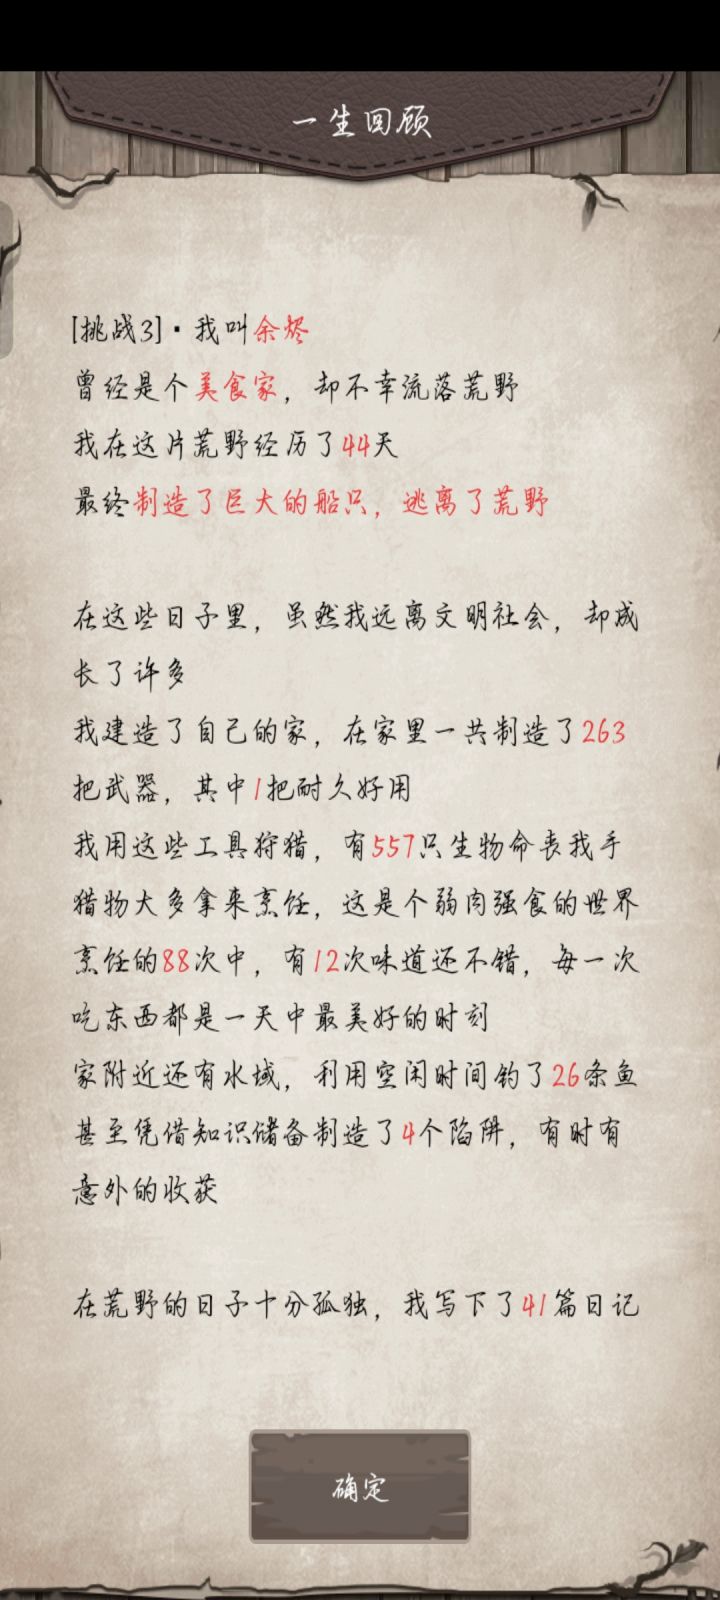 一生回顾
[挑战3]·我叫余烬
曾经是个美食家，却不幸流落荒野
我在这片荒野经历了44天
最终制造了巨大的船只，逃离了荒野
在这些日子里，虽然我远离文明社会，却成
长了许多
我建造了自己的家，在家里一共制造了263
把武器，其中1把耐久好用
我用这些工具狩猎，有557只生物命丧我手
猎物大多拿来烹饪，这是个弱肉强食的世界
烹饪的88次中，有12次味道还不错，每一次
吃东西都是一天中最美好的时刻
家附近还有水域，利用空闲时间钓了26条鱼
甚至凭借知识储备制造了4个陷阱，有时有
意外的收获
在荒野的日子十分孤独，我写下了41篇日记
确定